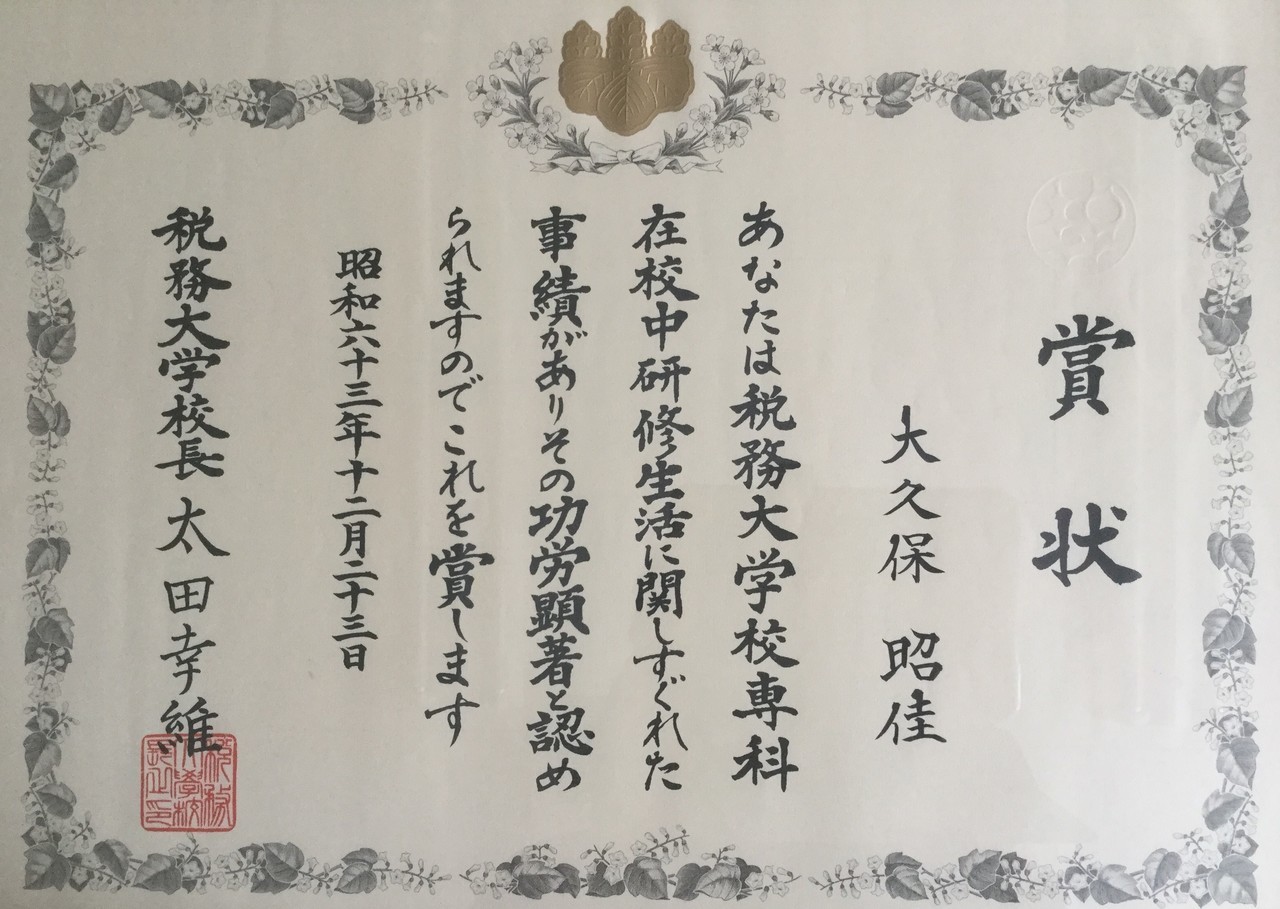 賞状
大久保 昭佳
あなたは税務大学校専科
在校中研修生活に関しすぐれた
事績がありその功労顕著と認め
られますのでこれを賞します
昭和六十三年十二月二十三日
税務大学校長 太田幸維
税務
大学校
長之印